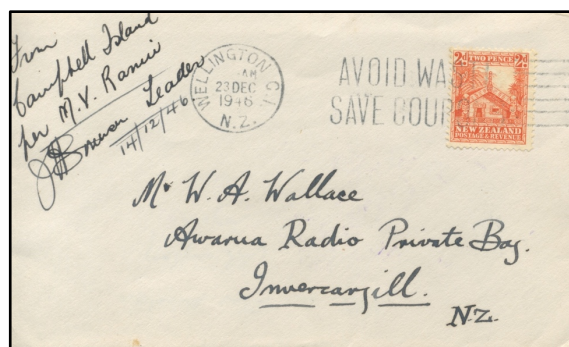 From
Campbell Island
per M.V. Ranui
Leader
14/12/46
WELLINGTON C.1.
AM
23 DEC
1946
N.Z.
AVOID WAS
SAVE COUR
2d TWO PENCE 2d
NEW ZEALAND
POSTAGE & REVENUE
Mr W. A. Wallace
Awarua Radio Private Bag.
Invercargill.
N.Z.